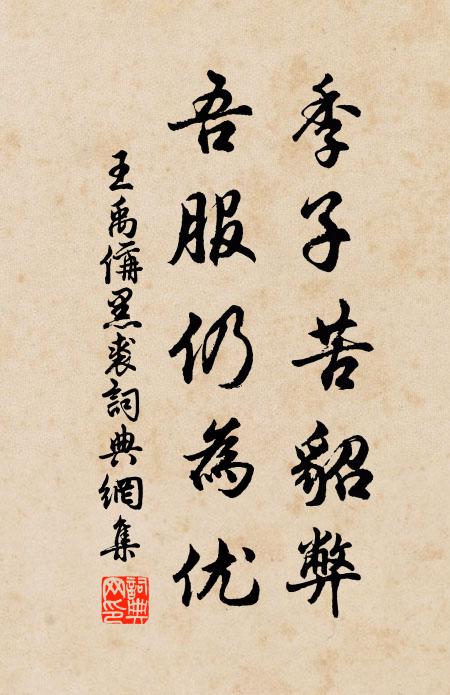 季子苦貂弊
吾服仍為优
王禹偁黑裘詞典網集